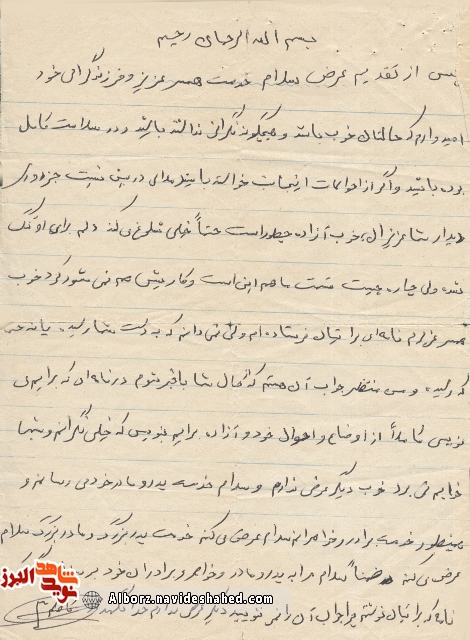 بسم الله الرحمان رحیم
پس از تقدیم عرض سلام خدمت همسر عزیز و فرزند گرامی خود
امیدوارم که حالتان خوب باشد و هیچگونه نگرانی نداشته باشید و در سلامت کامل
بوده باشید و اگر از احوالات اینجانب خواسته باشید ملالی در بین نیست جز دوری
دیدار شما عزیزان، خوب آزاده چطور است حتماً خیلی شلوغ می کند دلم برای او تنگ
شده ولی چاره چیست قسمت ما هم این است و کاریش هم نمی شود کرد خوب
همسر عزیزم نامه ای برایتان فرستاده ام ولی نمی دانم که به دست شما رسیده یا نه حتماً
که رسیده و من منتظر جواب آن هستم که از حال شما باخبر شوم در نامه ای که برایم می
نویسی کاملاً از اوضاع و احوال خود و آزاده برایم بنویس که خیلی نگرانم و شبها
خوابم نمی برد خوب دیگر عرضی ندارم و سلام خدمت پدر و مادر خود می رسانم و
همینطور خدمت برادر و خواهرانم سلام عرض می کنم خدمت پدر بزرگ و مادر بزرگ سلام
عرض می کنم ضمناً سلام مرا به پدر و مادر و خواهر و برادران خود برسان
نامه که برایتان نوشتم جواب آن را می نویسید دیگر عرضی ندارم خداحافظ
شاهد نوید البرز
Alborz.navideshahed.com